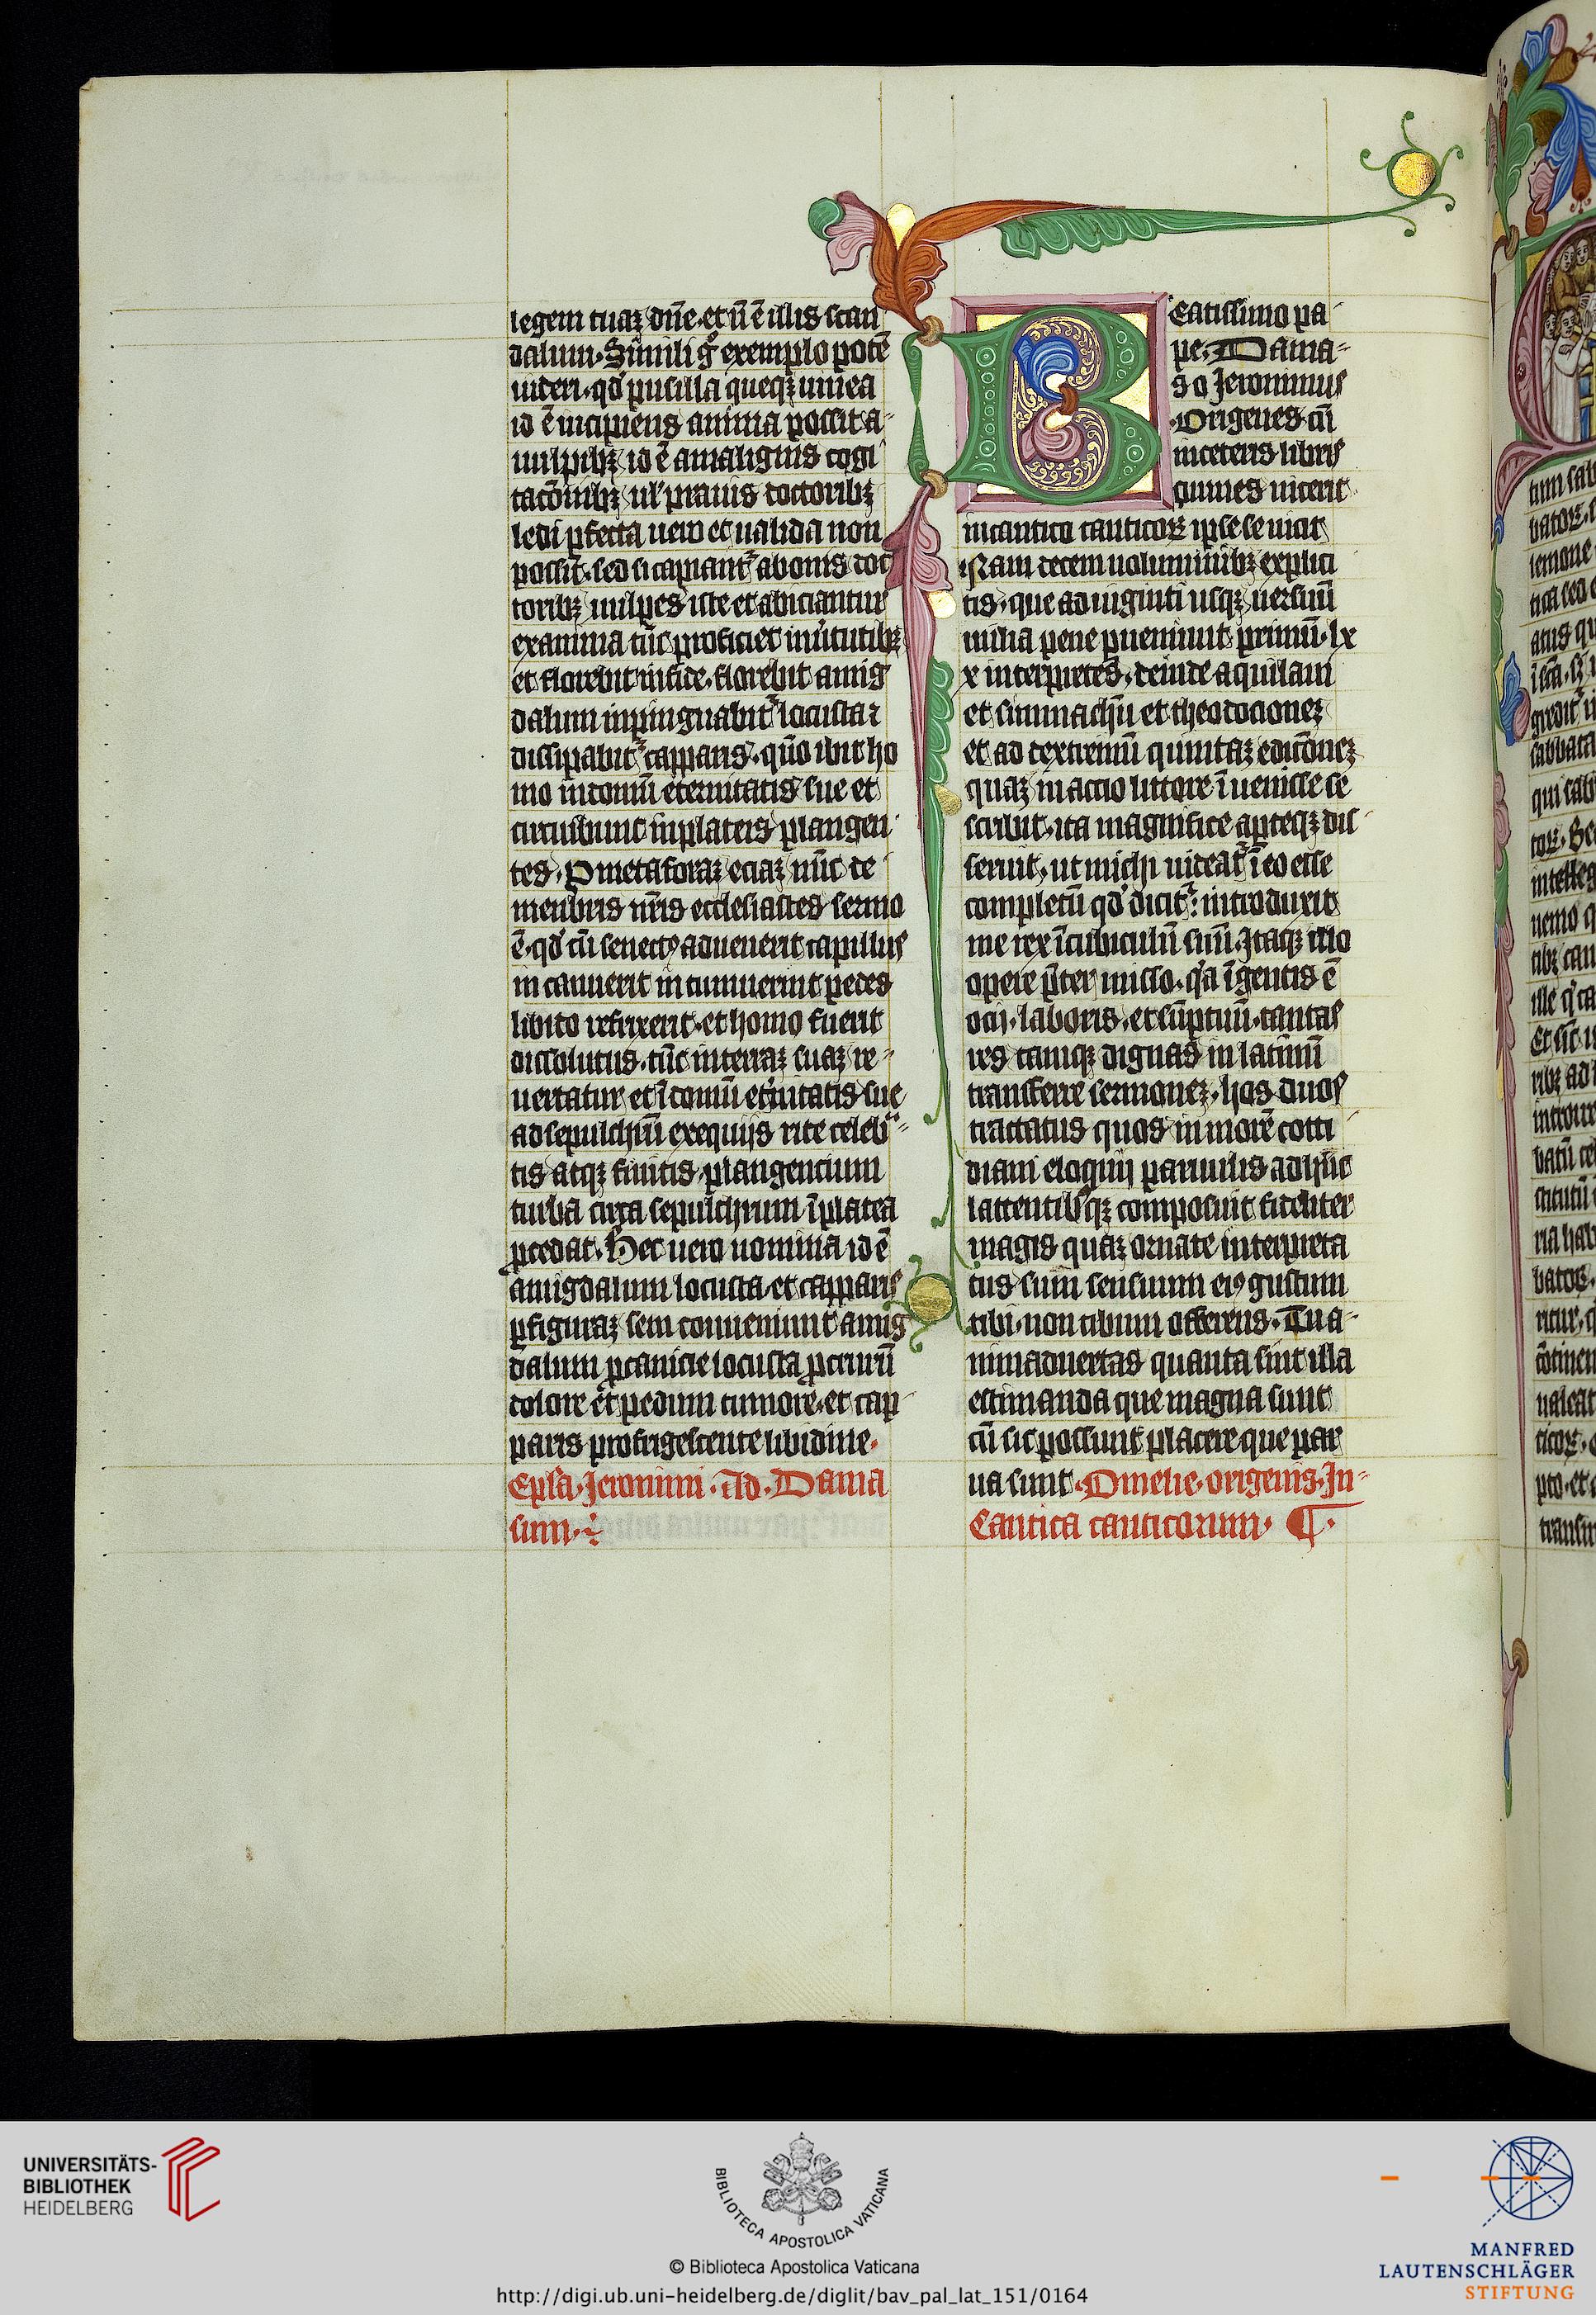 legem tuaz dn̄e. et n̄ ē illis scan
dalum. Simili gͦ exemplo potē
uideri. qd̛ pusilla queqꝫ uinea
id ē incipiens anima possit a-
uulpibꝫ, id ē amalignis cogi
tac̄onibꝫ, ul̛ prauis doctoribꝫ
ledi ꝑfecta uero et ualida non
possit. sed si capiant᷑ abonis doc
toribꝫ uulpes iste et abiciantur
exanima tūc proficiet inuirtutibꝫ
et florebit infide. florebit amig
dalum inpinguabit᷑ locusta ꝛ
dissipabit᷑ capparis. qn̄o ibit ho
mo indomū eternitatis sue et
circuibunt inplateis plangen
tes. P metaforaz eciaz nūc de
menbris nr̄is ecclesiastes sermo
ē. qd̛ cū senectꝰ aduenerit capillus
in canuerit in tumuerint pedes
libido refrixerit. et homo fuerit
dissolutus. tūc interraz suaz re-
uertatur et ī domū et̛nitatis sue
ad sepulchrū exequijs rite celeb̛-
tis atqꝫ finitis. plangencium
turba circa sepulchrum īplatea
ꝓcedat. Hec uero nomina id ē
amigdalum locusta et capparis
ꝑfiguraz sem conueniunt amig
dalum ꝓcanicie locusta ꝓcrurū
dolore et pedum tumore. et cap
paris profrigescente libidine.
Epl̛a. Jeronimi. Ad. Dama
sum.
Beatissimo pa
pe. Dama-
so Jeronimus
Origenes cū
inceteris libris
omnes uicerit
incantico canticoꝝ ipse se uicit
Nam decem uoluminibꝫ explici
tis. que aduiginti usqꝫ uersuū
milia pene ꝑueniunt primū. lx
x interpretes. deinde aquilam
et simmachū et theodocionez
et ad extremū quintaz edic̄onez
quaz inaccio littore īuenisse se
scribit. ita magnifice apteqꝫ dis
seruit, ut michi uideat᷑ ī eo esse
completū qd̛ dicit᷑: introduxit
me rex īcubiculū suū. Itaqꝫ illo
opere p̄ter misso. qa īgentis ē
ocij. laboris. et sūptuū. tantas
res tamqꝫ dignas in latinū
transferre sermonez. hos duos
tractatus quos in morē cotti
diani eloquij paruulis adhuc
lactentibꝰqꝫ composuit fideliter
magis quaz ornate interpreta
tus sum sensuum eiꝰ gustum
tibi. non cibum offerens. Tu a-
nimaduertas quanta sint illa
estimanda que magna sunt
cū sic possunt placere que par
ua sunt. Omelie. origenis. In-
Cantica canticorum. ¶.
UNIVERSITÄTS-
BIBLIOTHEK
HEIDELBERG
BIBLIOTECA APOSTOLICA VATICANA
© Biblioteca Apostolica Vaticana
http://digi.ub.uni-heidelberg.de/diglit/bav_pal_lat_151/0164
MANFRED
LAUTENSCHLÄGER
STIFTUNG